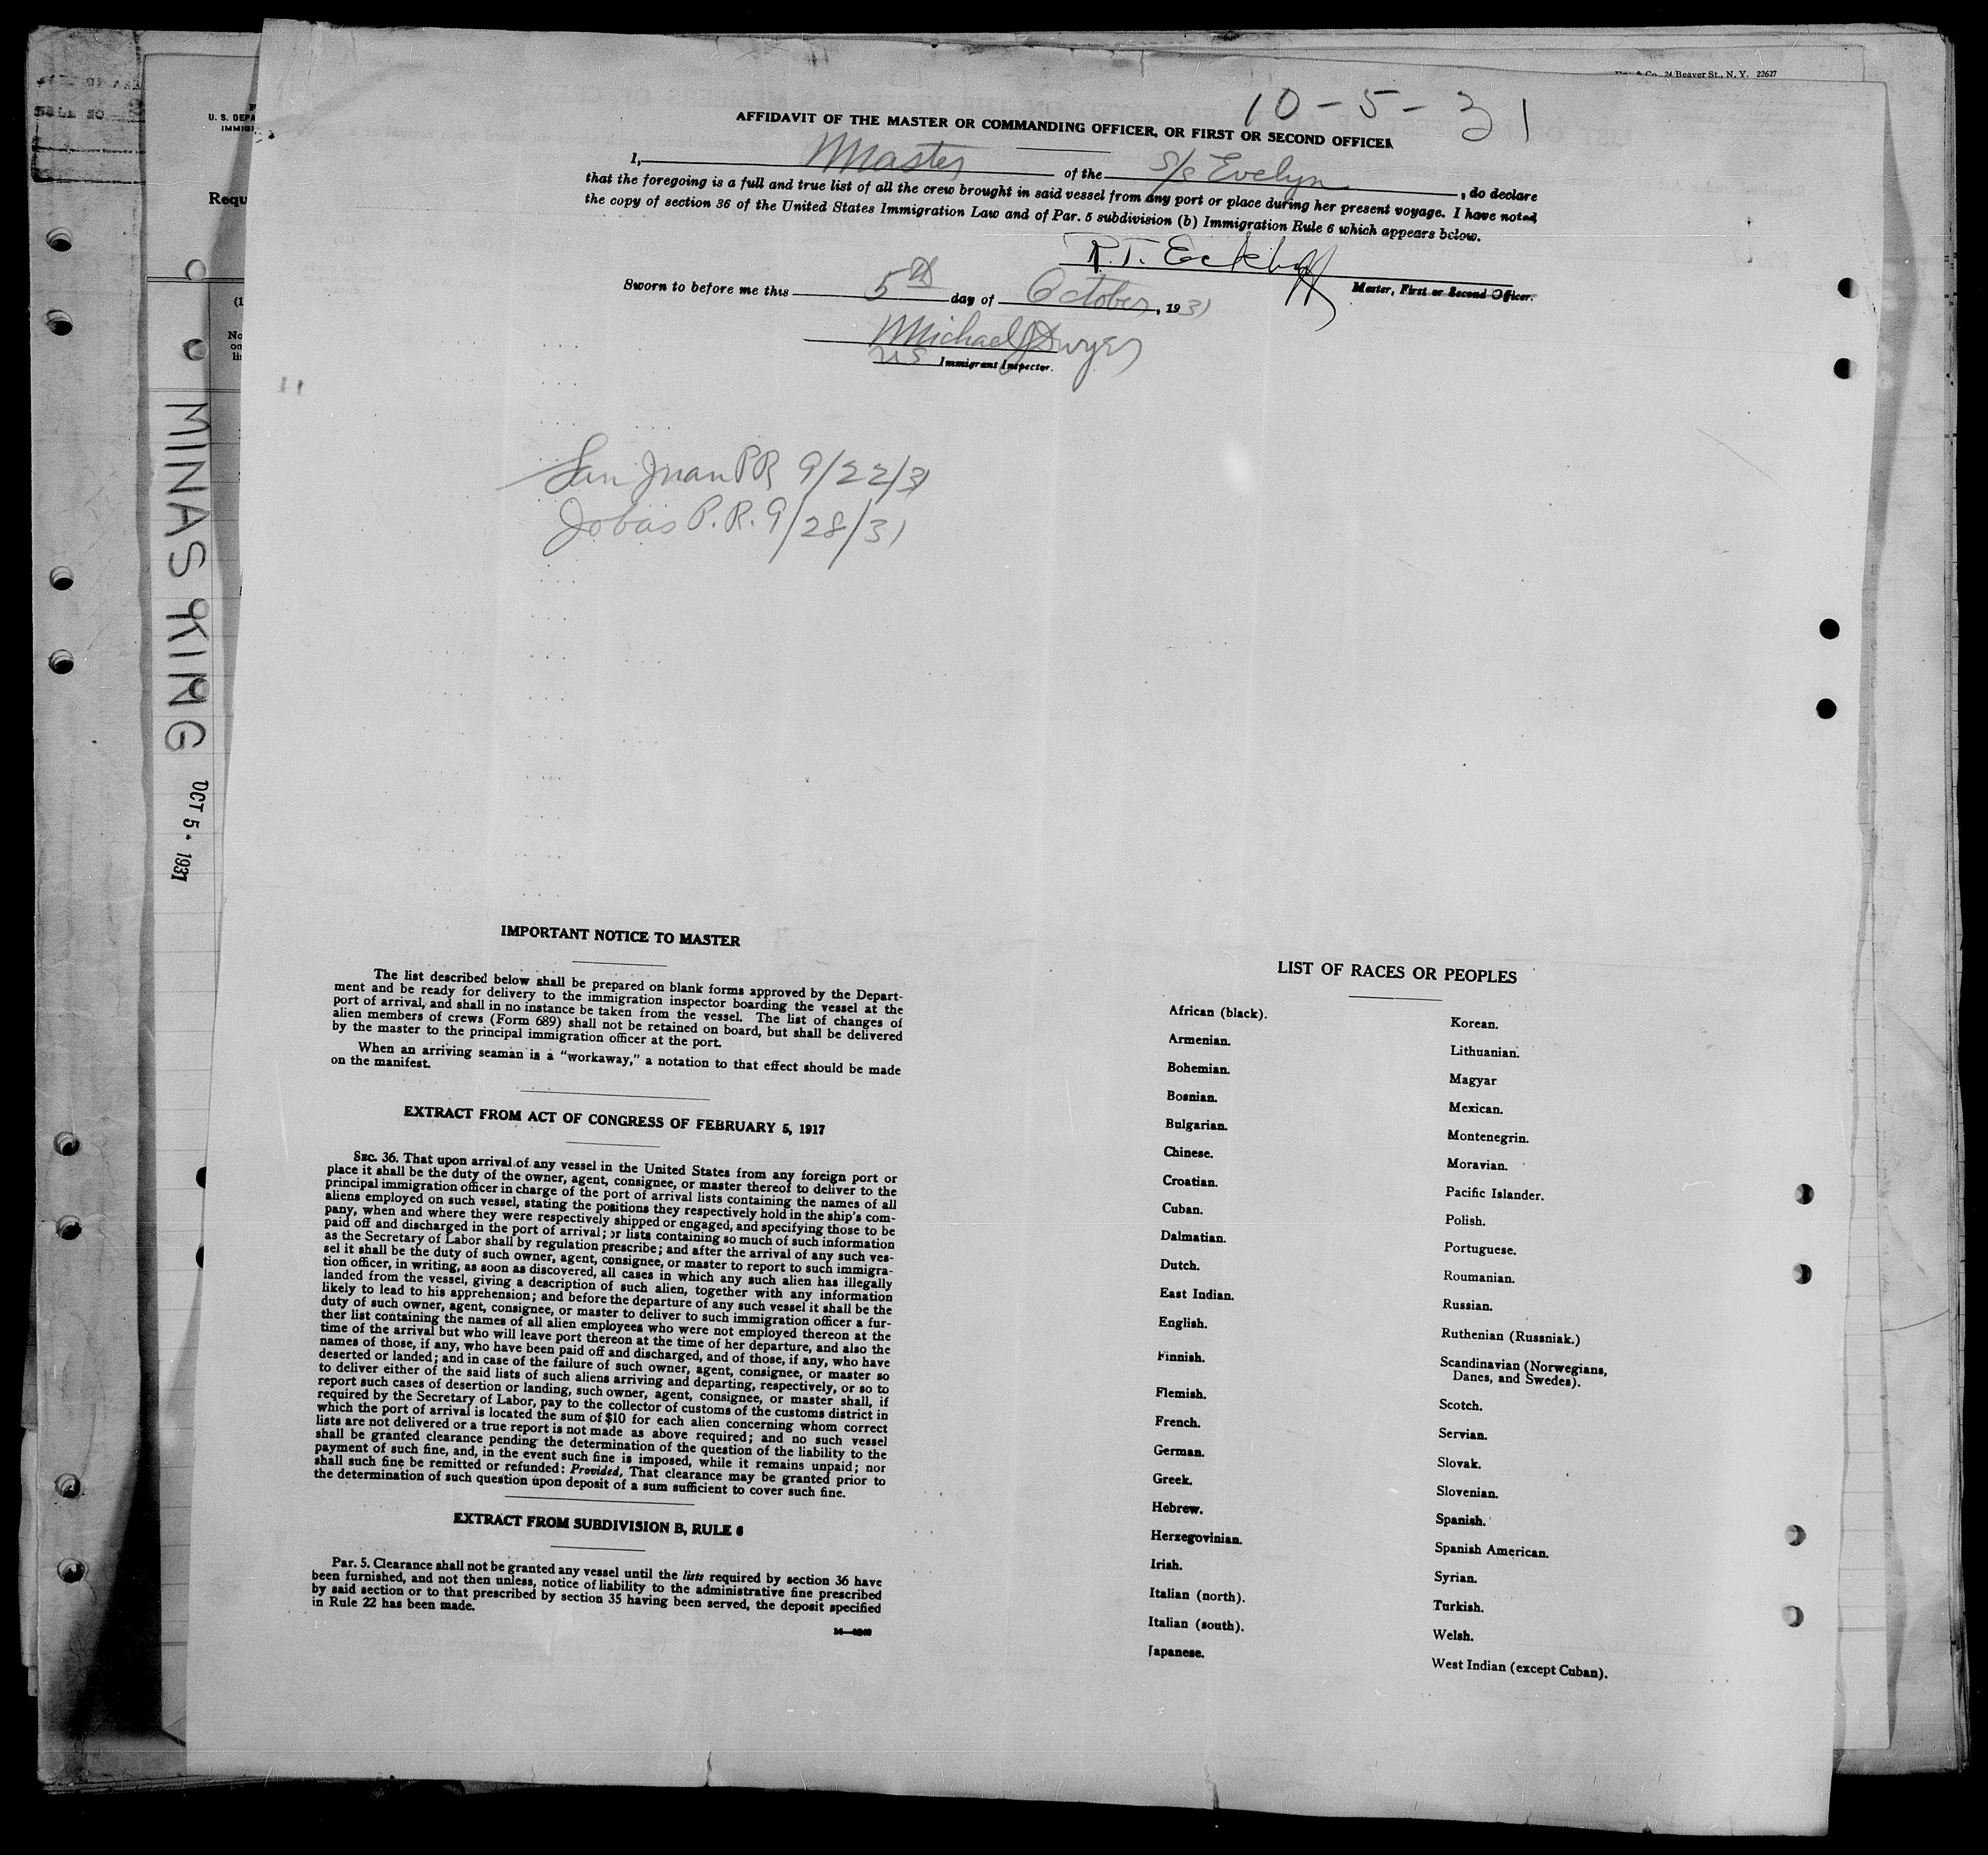 24 Beaver St., N. Y. 22627
10-5-31
AFFIDAVIT OF THE MASTER OR COMMANDING OFFICER, OR FIRST OR SECOND OFFICER
I, Master of the S/S Evelyn, do declare
that the foregoing is a full and true list of all the crew brought in said vessel from any port or place during her present voyage. I have noted
the copy of section 36 of the United States Immigration Law and of Par. 5 subdivision (b) Immigration Rule 6 which appears below.
R.T. Eckhoff
Master, First or Second Officer.
Sworn to before me this 5th day of October, 1931
Michael J Dwyer
US Immigrant Inspector.
San Juan PR 9/22/31
Jobas P.R. 9/28/31
U. S. DEPA
IMMIGI
Requ
(1
No
on
lis
MINAS KING
OCT 5 - 1931
IMPORTANT NOTICE TO MASTER
The list described below shall be prepared on blank forms approved by the Depart-
ment and be ready for delivery to the immigration inspector boarding the vessel at the
port of arrival, and shall in no instance be taken from the vessel. The list of changes of
alien members of crews (Form 689) shall not be retained on board, but shall be delivered
by the master to the principal immigration officer at the port.
When an arriving seaman is a "workaway," a notation to that effect should be made
on the manifest.
EXTRACT FROM ACT OF CONGRESS OF FEBRUARY 5, 1917
SEC. 36. That upon arrival of any vessel in the United States from any foreign port or
place it shall be the duty of the owner, agent, consignee, or master thereof to deliver to the
principal immigration officer in charge of the port of arrival lists containing the names of all
aliens employed on such vessel, stating the positions they respectively hold in the ship's com-
pany, when and where they were respectively shipped or engaged, and specifying those to be
paid off and discharged in the port of arrival; or lists containing so much of such information
as the Secretary of Labor shall by regulation prescribe; and after the arrival of any such ves-
sel it shall be the duty of such owner, agent, consignee, or master to report to such immigra-
tion officer, in writing, as soon as discovered, all cases in which any such alien has illegally
landed from the vessel, giving a description of such alien, together with any information
likely to lead to his apprehension; and before the departure of any such vessel it shall be the
duty of such owner, agent, consignee, or master to deliver to such immigration officer a fur-
ther list containing the names of all alien employees who were not employed thereon at the
time of the arrival but who will leave port thereon at the time of her departure, and also the
names of those, if any, who have been paid off and discharged, and of those, if any, who have
deserted or landed; and in case of the failure of such owner, agent, consignee, or master so
to deliver either of the said lists of such aliens arriving and departing, respectively, or so to
report such cases of desertion or landing, such owner, agent, consignee, or master shall, if
required by the Secretary of Labor, pay to the collector of customs of the customs district in
which the port of arrival is located the sum of $10 for each alien concerning whom correct
lists are not delivered or a true report is not made as above required; and no such vessel
shall be granted clearance pending the determination of the question of the liability to the
payment of such fine, and, in the event such fine is imposed, while it remains unpaid; nor
shall such fine be remitted or refunded: Provided, That clearance may be granted prior to
the determination of such question upon deposit of a sum sufficient to cover such fine.
EXTRACT FROM SUBDIVISION B, RULE 6
Par. 5. Clearance shall not be granted any vessel until the lists required by section 36 have
been furnished, and not then unless, notice of liability to the administrative fine prescribed
by said section or to that prescribed by section 35 having been served, the deposit specified
in Rule 22 has been made.
LIST OF RACES OR PEOPLES
African (black).
Armenian.
Bohemian.
Bosnian.
Bulgarian.
Chinese.
Croatian.
Cuban.
Dalmatian.
Dutch.
East Indian.
English.
Finnish.
Flemish.
French.
German.
Greek.
Hebrew.
Herzegovinian.
Irish.
Italian (north).
Italian (south).
Japanese.
Korean.
Lithuanian.
Magyar
Mexican.
Montenegrin.
Moravian.
Pacific Islander.
Polish.
Portuguese.
Roumanian.
Russian.
Ruthenian (Russniak.)
Scandinavian (Norwegians,
Danes, and Swedes).
Scotch.
Servian.
Slovak.
Slovenian.
Spanish.
Spanish American.
Syrian.
Turkish.
Welsh.
West Indian (except Cuban).